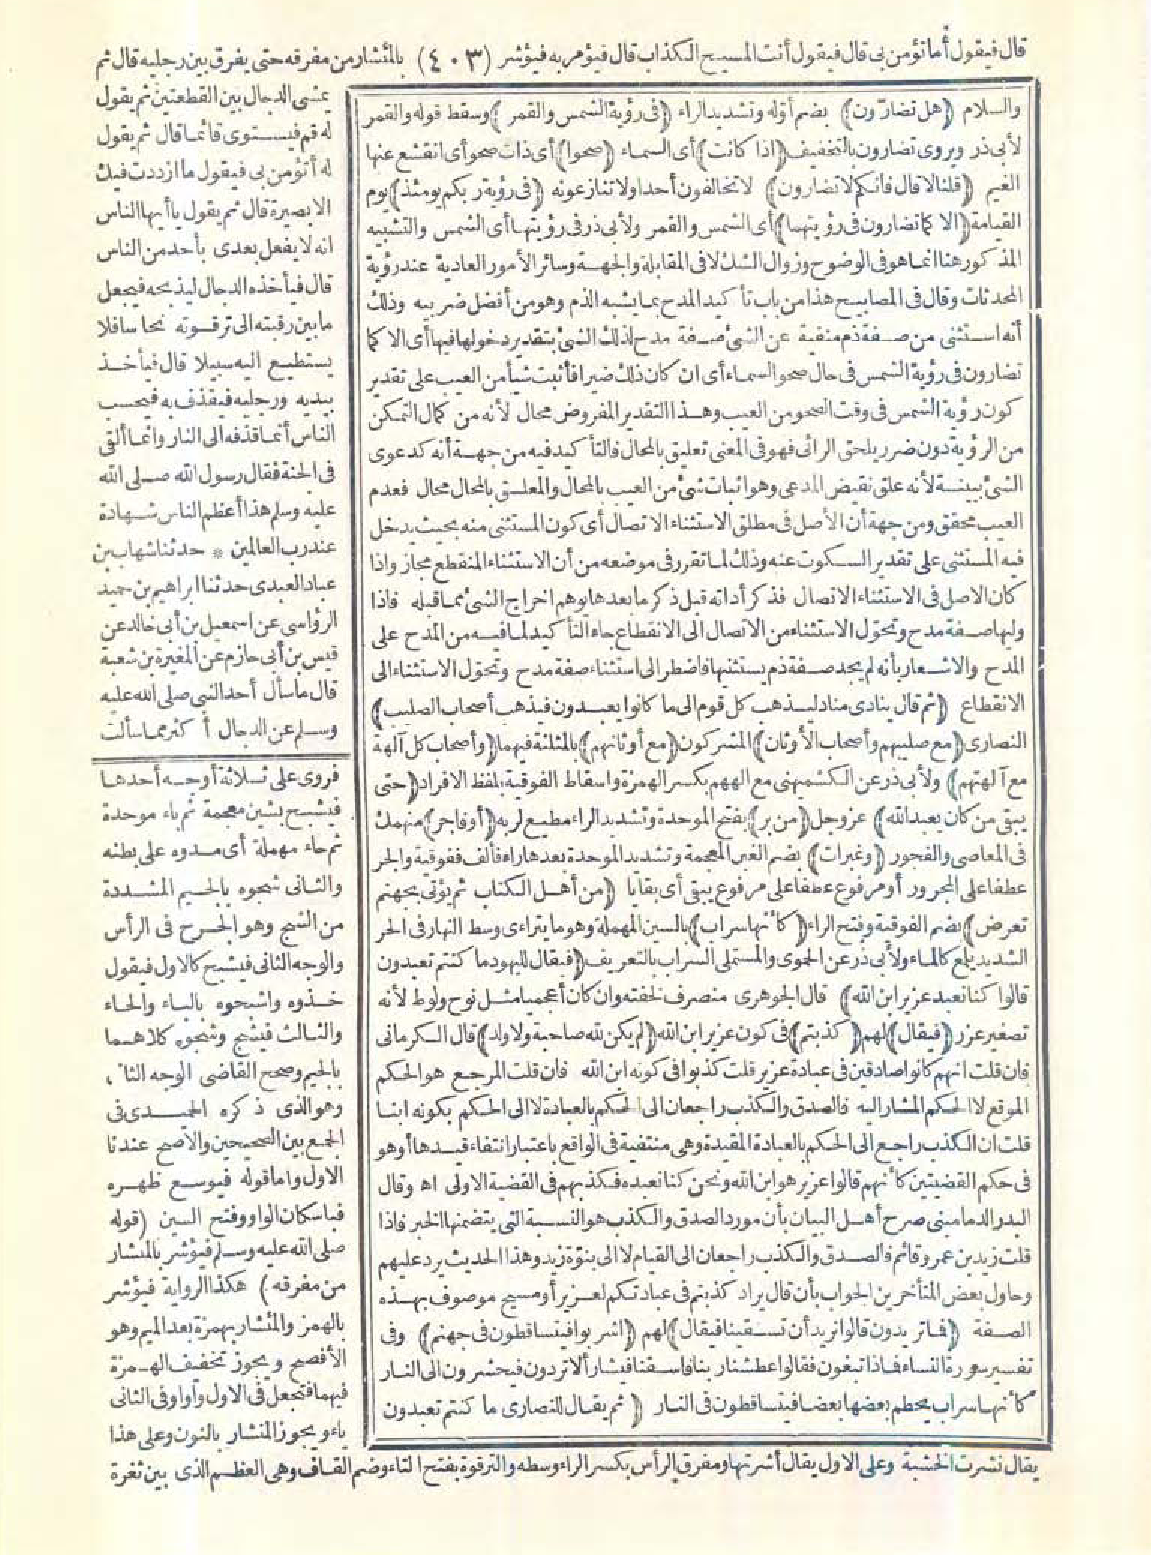 قال فيقول أما تؤمن بي قال فيقول أنت المسيح الكذاب قال فيؤمر به فيؤشر (٤٠٣) بالمئشار من مفرقه حتى يفرق بين رجليه قال ثم
والسلام (هل تضارّون) بضم أوّله وتشديد الراء (فى رؤية الشمس والقمر) وسقط قوله والقمر
لأبى ذر ويروى تضارون بالتخفيف (اذا كانت) أى السماء (صحوا) أى ذات صحو أى انقشع عنها
الغيم (قلنا لا قال فانكم لا تضارون) لا تخالفون أحدا ولا تنازعونه (فى رؤية ربكم يومئذ) يوم
القيامة (الا كما تضارون فى رؤيتهما) أى الشمس والقمر ولأبى ذر فى رؤيتها أى الشمس والتشبيه
المذكور هنا انما هو فى الوضوح وزوال الشك لا فى المقابلة والجهة وسائر الأمور العادية عند رؤية
المحدثات وقال فى المصابيح هذا من باب تأكيد المدح بما يشبه الذم وهو من أفضل ضربيه وذلك
أنه استثنى من صفة ذم منفية عن الشئ صفة مدح لذلك الشئ بتقدير دخولها فيها أى الا كما
تضارون فى رؤية الشمس فى حال صحو السماء أى ان كان ذلك ضيرا فأثبت شيأ من العيب على تقدير
كون رؤية الشمس فى وقت الصحو من العيب وهذا التقدير المفروض محال لأنه من كمال التمكن
من الرؤية دون ضرر يلحق الرائى فهو فى المعنى تعليق بالمحال فالتأكيد فيه من جهة أنه كدعوى
الشئ ببينة لأنه علق نقيض المدعى وهو اثبات شئ من العيب بالمحال والمعلق بالمحال محال فعدم
العيب محقق ومن جهة أن الأصل فى مطلق الاستثناء الاتصال أى كون المستثنى منه بحيث يدخل
فيه المستثنى على تقدير السكوت عنه وذلك لما تقرر فى موضعه من أن الاستثناء المنقطع مجاز واذا
كان الاصل فى الاستثناء الاتصال فذكر أداته قبل ذكر ما بعدها يوهم اخراج الشئ مما قبله فاذا
وليها صفة مدح وتحوّل الاستثناء من الاتصال الى الانقطاع جاء التأكيد لما فيه من المدح على
المدح والاشعار بأنه لم يجد صفة ذم يستثنيها فاضطر الى استثناء صفة مدح وتحوّل الاستثناء الى
الانقطاع (ثم قال ينادى مناد ليذهب كل قوم الى ما كانوا يعبدون فيذهب أصحاب الصليب)
النصارى (مع صليبهم وأصحاب الأوثان) المشركون (مع أوثانهم) بالمثلثة فيهما (وأصحاب كل آلهة
مع آلهتهم) ولأبى ذر عن الكشميهنى مع الههم بكسر الهمزة واسقاط الفوقية بلفظ الافراد (حتى
يبقى من كان يعبد الله) عز وجل (من بر) بفتح الموحدة وتشديد الراء مطيع لربه (أو فاجر) منهمك
فى المعاصى والفجور (وغبرات) بضم الغين المعجمة وتشديد الموحدة بعدها راء فألف ففوقية والجر
عطفا على المجرور أو مرفوع عطفا على مرفوع يبقى أى بقايا (من أهل الكتاب ثم يؤتى بجهنم
تعرض) بضم الفوقية وفتح الراء (كأنها سراب) بالسين المهملة وهو ما يتراءى وسط النهار فى الحر
الشديد يلمع كالماء ولأبى ذر عن الحموى والمستملى السراب بالتعريف (فيقال لليهود ما كنتم تعبدون
قالوا كنا نعبد عزير ابن الله) قال الجوهرى منصرف لخفته وان كان أعجميا مثل نوح ولوط لأنه
تصغير عزر (فيقال) لهم (كذبتم) فى كون عزير ابن الله (لم يكن لله صاحبة ولا ولد) قال الكرمانى
فان قلت انهم كانوا صادقين فى عبادة عزير قلت كذبوا فى كونه ابن الله فان قلت المرجع هو الحكم
الموقع لا الحكم المشار اليه فالصدق والكذب راجعان الى الحكم بالعبادة لا الى الحكم بكونه ابنا
قلت ان الكذب راجع الى الحكم بالعبادة المقيدة وهى منتفية فى الواقع باعتبار انتفاء قيدها أو هو
فى حكم القضيتين كأنهم قالوا عزير هو ابن الله ونحن كنا نعبده فكذبهم فى القضية الاولى اه وقال
البدر الدمامينى صرح أهل البيان بأن مورد الصدق والكذب هو النسبة التى يتضمنها الخبر فاذا
قلت زيد بن عمرو قائم فالصدق والكذب راجعان الى القيام لا الى بنوّة زيد وهذا الحديث يرد عليهم
وحاول بعض المتأخرين الجواب بأن قال يراد كذبتم فى عبادتكم لعزير أو مسيح موصوف بهذه
الصفة (فما تريدون قالوا نريد أن تسقينا فيقال) لهم (اشربوا فيتساقطون فى جهنم) وفى
تفسير سورة النساء فماذا تبغون فقالوا عطشنا ربنا فاسقنا فيشار ألا تردون فيحشرون الى النار
كأنها سراب يحطم بعضها بعضا فيتساقطون فى النار (ثم يقال للنصارى ما كنتم تعبدون
يمشى الدجال بين القطعتين ثم يقول
له قم فيستوى قائما قال ثم يقول
له أتؤمن بى فيقول ما ازددت فيك
الا بصيرة قال ثم يقول يا أيها الناس
انه لا يفعل بعدى بأحد من الناس
قال فيأخذه الدجال ليذبحه فيجعل
ما بين رقبته الى ترقوته نحاسا فلا
يستطيع اليه سبيلا قال فيأخذ
بيديه ورجليه فيقذف به فيحسب
الناس أنما قذفه الى النار وانما ألقى
فى الجنة فقال رسول الله صلى الله
عليه وسلم هذا أعظم الناس شهادة
عند رب العالمين * حدثنا شهاب بن
عباد العبدى حدثنا ابراهيم بن حميد
الرؤاسى عن اسمعيل بن أبى خالد عن
قيس بن أبى حازم عن المغيرة بن شعبة
قال ما سأل أحد النبى صلى الله عليه
وسلم عن الدجال أكثر مما سألت
فروى على ثلاثة أوجه أحدها
فيشبح بشين معجمة ثم باء موحدة
ثم حاء مهملة أى مدوه على بطنه
والثانى شجوه بالجيم المشددة
من الشج وهو الجرح فى الرأس
والوجه الثانى فيشبح كالاول فيقول
خذوه واشبحوه بالباء والحاء
والثالث فيشج وشجوه كلاهما
بالجيم وصحح القاضى الوجه الثا
وهو الذى ذكره الحميدى فى
الجمع بين الصحيحين والاصح عندنا
الاول واما قوله فيوسع ظهره
فباسكان الواو وفتح السين (قوله
صلى الله عليه وسلم فيؤشر بالمئشار
من مفرقه) هكذا الرواية فيؤشر
بالهمز والمئشار بهمزة بعد الميم وهو
الأفصح ويجوز تخفيف الهمزة
فيهما فتجعل فى الاول واوا وفى الثانى
ياء ويجوز المنشار بالنون وعلى هذا
يقال نشرت الخشبة وعلى الاول يقال أشرتها ومفرق الرأس بكسر الراء وسطه والترقوة بفتح التاء وضم القاف وهى العظم الذى بين ثغرة